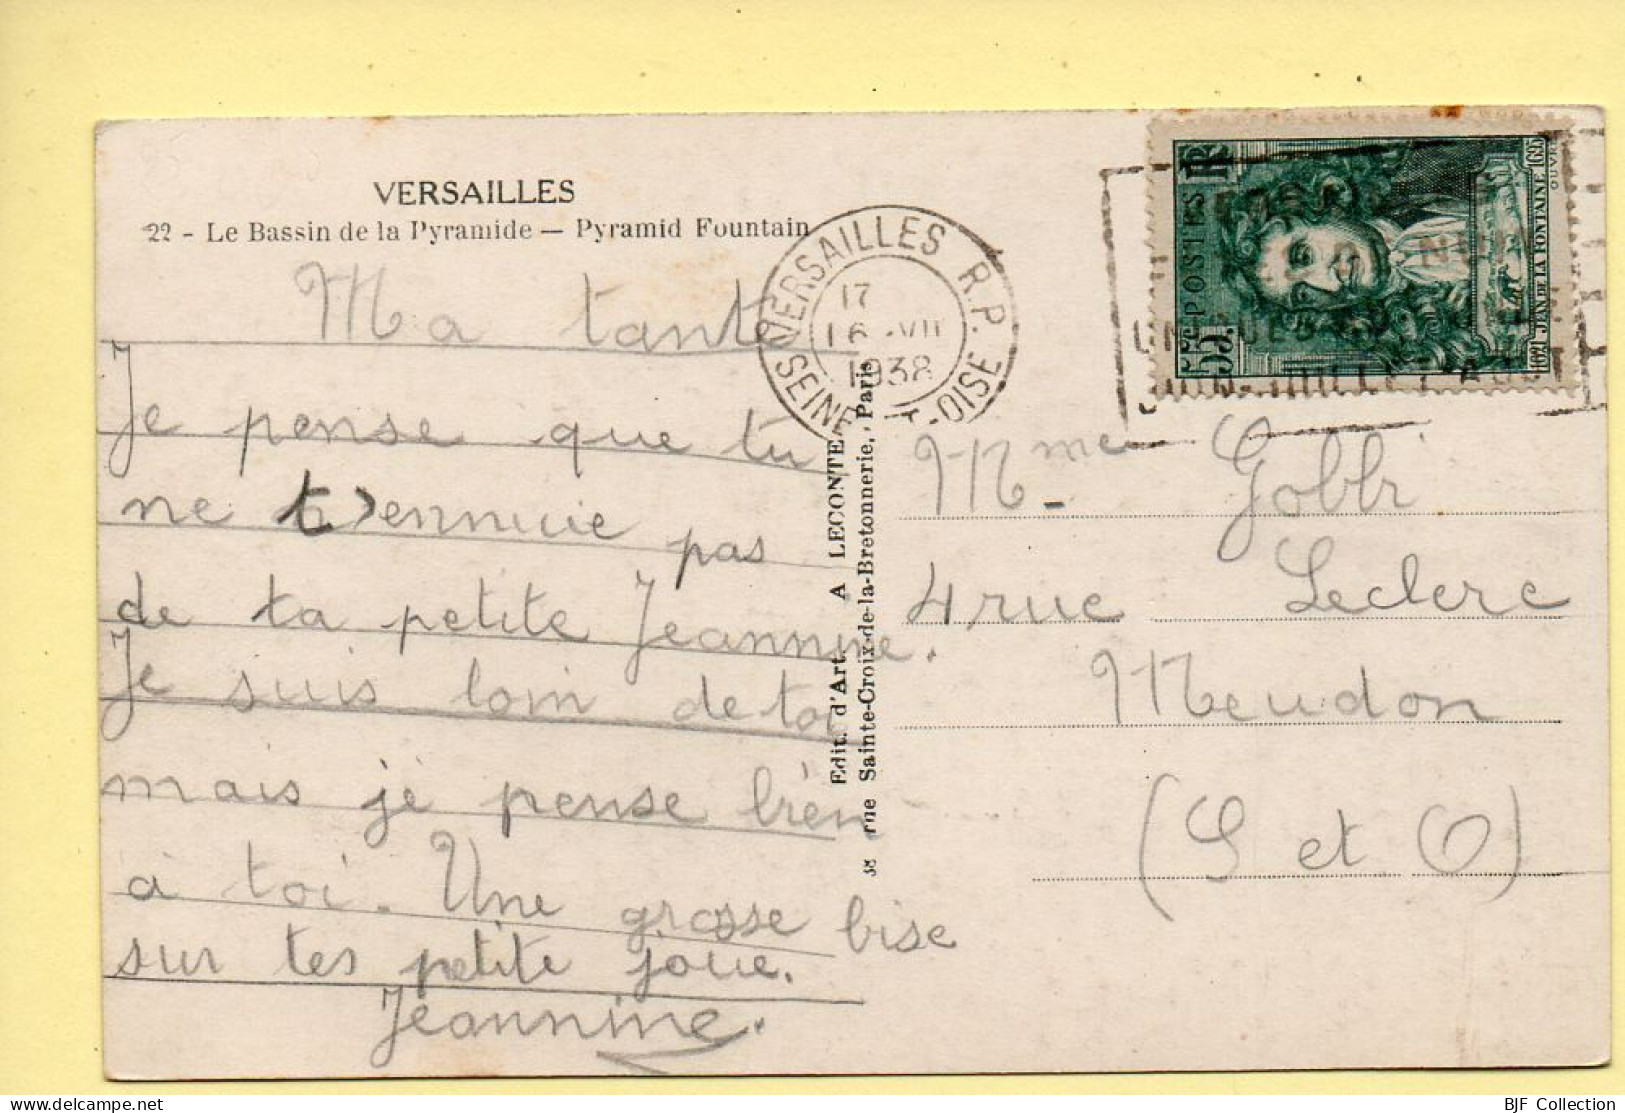 VERSAILLES
22 - Le Bassin de la Pyramide — Pyramid Fountain
Ma tante
Je pense que tu
ne t'ennuie pas
de ta petite Jeannine.
Je suis loin de toi
mais je pense bien
à toi. Une grosse bise
sur tes petite joue.
Jeannine.
Edit. d'Art. A LECONTE
38 rue Sainte-Croix-de-la-Bretonnerie, Paris
VERSAILLES R.P.
17
16 VII
1938
SEINE ET OISE
POSTES RF
55c
1621 JEAN DE LA FONTAINE 1695
OUVRÉ
JUILLET AOUT
Mme Gobbi
4 rue Leclerc
Meudon
(S et O)
delcampe.net
BJF Collection